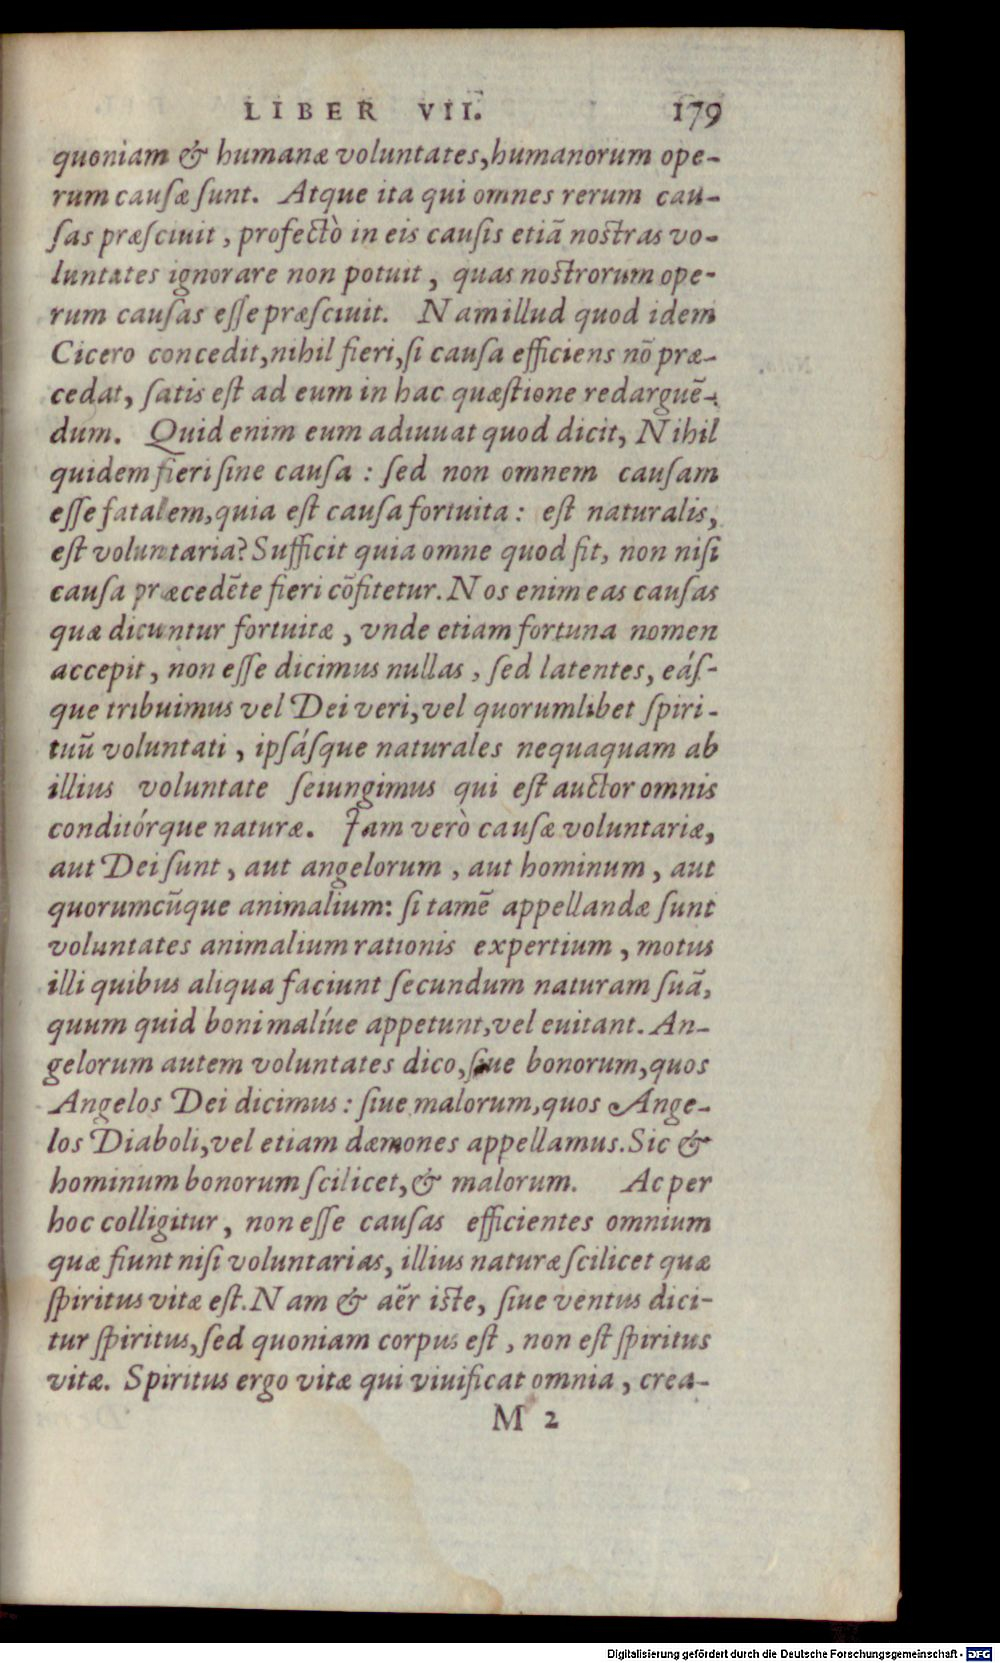 LIBER VII. 179
quoniam & humanæ voluntates,humanorum ope-
rum cauſæ ſunt. Atque ita qui omnes rerum cau-
ſas præſciuit, profectò in eis cauſis etiã noſtras vo-
luntates ignorare non potuit, quas noſtrorum ope-
rum cauſas eſſe præſciuit. Nam illud quod idem
Cicero concedit,nihil fieri,ſi cauſa efficiens nõ præ-
cedat, ſatis eſt ad eum in hac quæſtione redarguẽ-
dum. Quid enim eum adiuuat quod dicit, Nihil
quidem fieri ſine cauſa: ſed non omnem cauſam
eſſe fatalem,quia eſt cauſa fortuita: eſt naturalis,
eſt voluntaria? Sufficit quia omne quod fit, non niſi
cauſa præcedẽte fieri cõfitetur. Nos enim eas cauſas
quæ dicuntur fortuitæ, vnde etiam fortuna nomen
accepit, non eſſe dicimus nullas, ſed latentes, eáſ-
que tribuimus vel Dei veri,vel quorumlibet ſpiri-
tuũ voluntati, ipſáſque naturales nequaquam ab
illius voluntate ſeiungimus qui eſt auctor omnis
conditórque naturæ. Iam verò cauſæ voluntariæ,
aut Dei ſunt, aut angelorum, aut hominum, aut
quorumcũque animalium: ſi tamẽ appellandæ ſunt
voluntates animalium rationis expertium, motus
illi quibus aliqua faciunt ſecundum naturam ſuã,
quum quid boni malíue appetunt,vel euitant. An-
gelorum autem voluntates dico,ſiue bonorum,quos
Angelos Dei dicimus: ſiue malorum,quos Ange-
los Diaboli,vel etiam dæmones appellamus. Sic &
hominum bonorum ſcilicet,& malorum. Ac per
hoc colligitur, non eſſe cauſas efficientes omnium
quæ fiunt niſi voluntarias, illius naturæ ſcilicet quæ
ſpiritus vitæ eſt. Nam & aër iſte, ſiue ventus dici-
tur ſpiritus,ſed quoniam corpus eſt, non eſt ſpiritus
vitæ. Spiritus ergo vitæ qui viuificat omnia, crea-
M 2
Digitalisierung gefördert durch die Deutsche Forschungsgemeinschaft - DFG